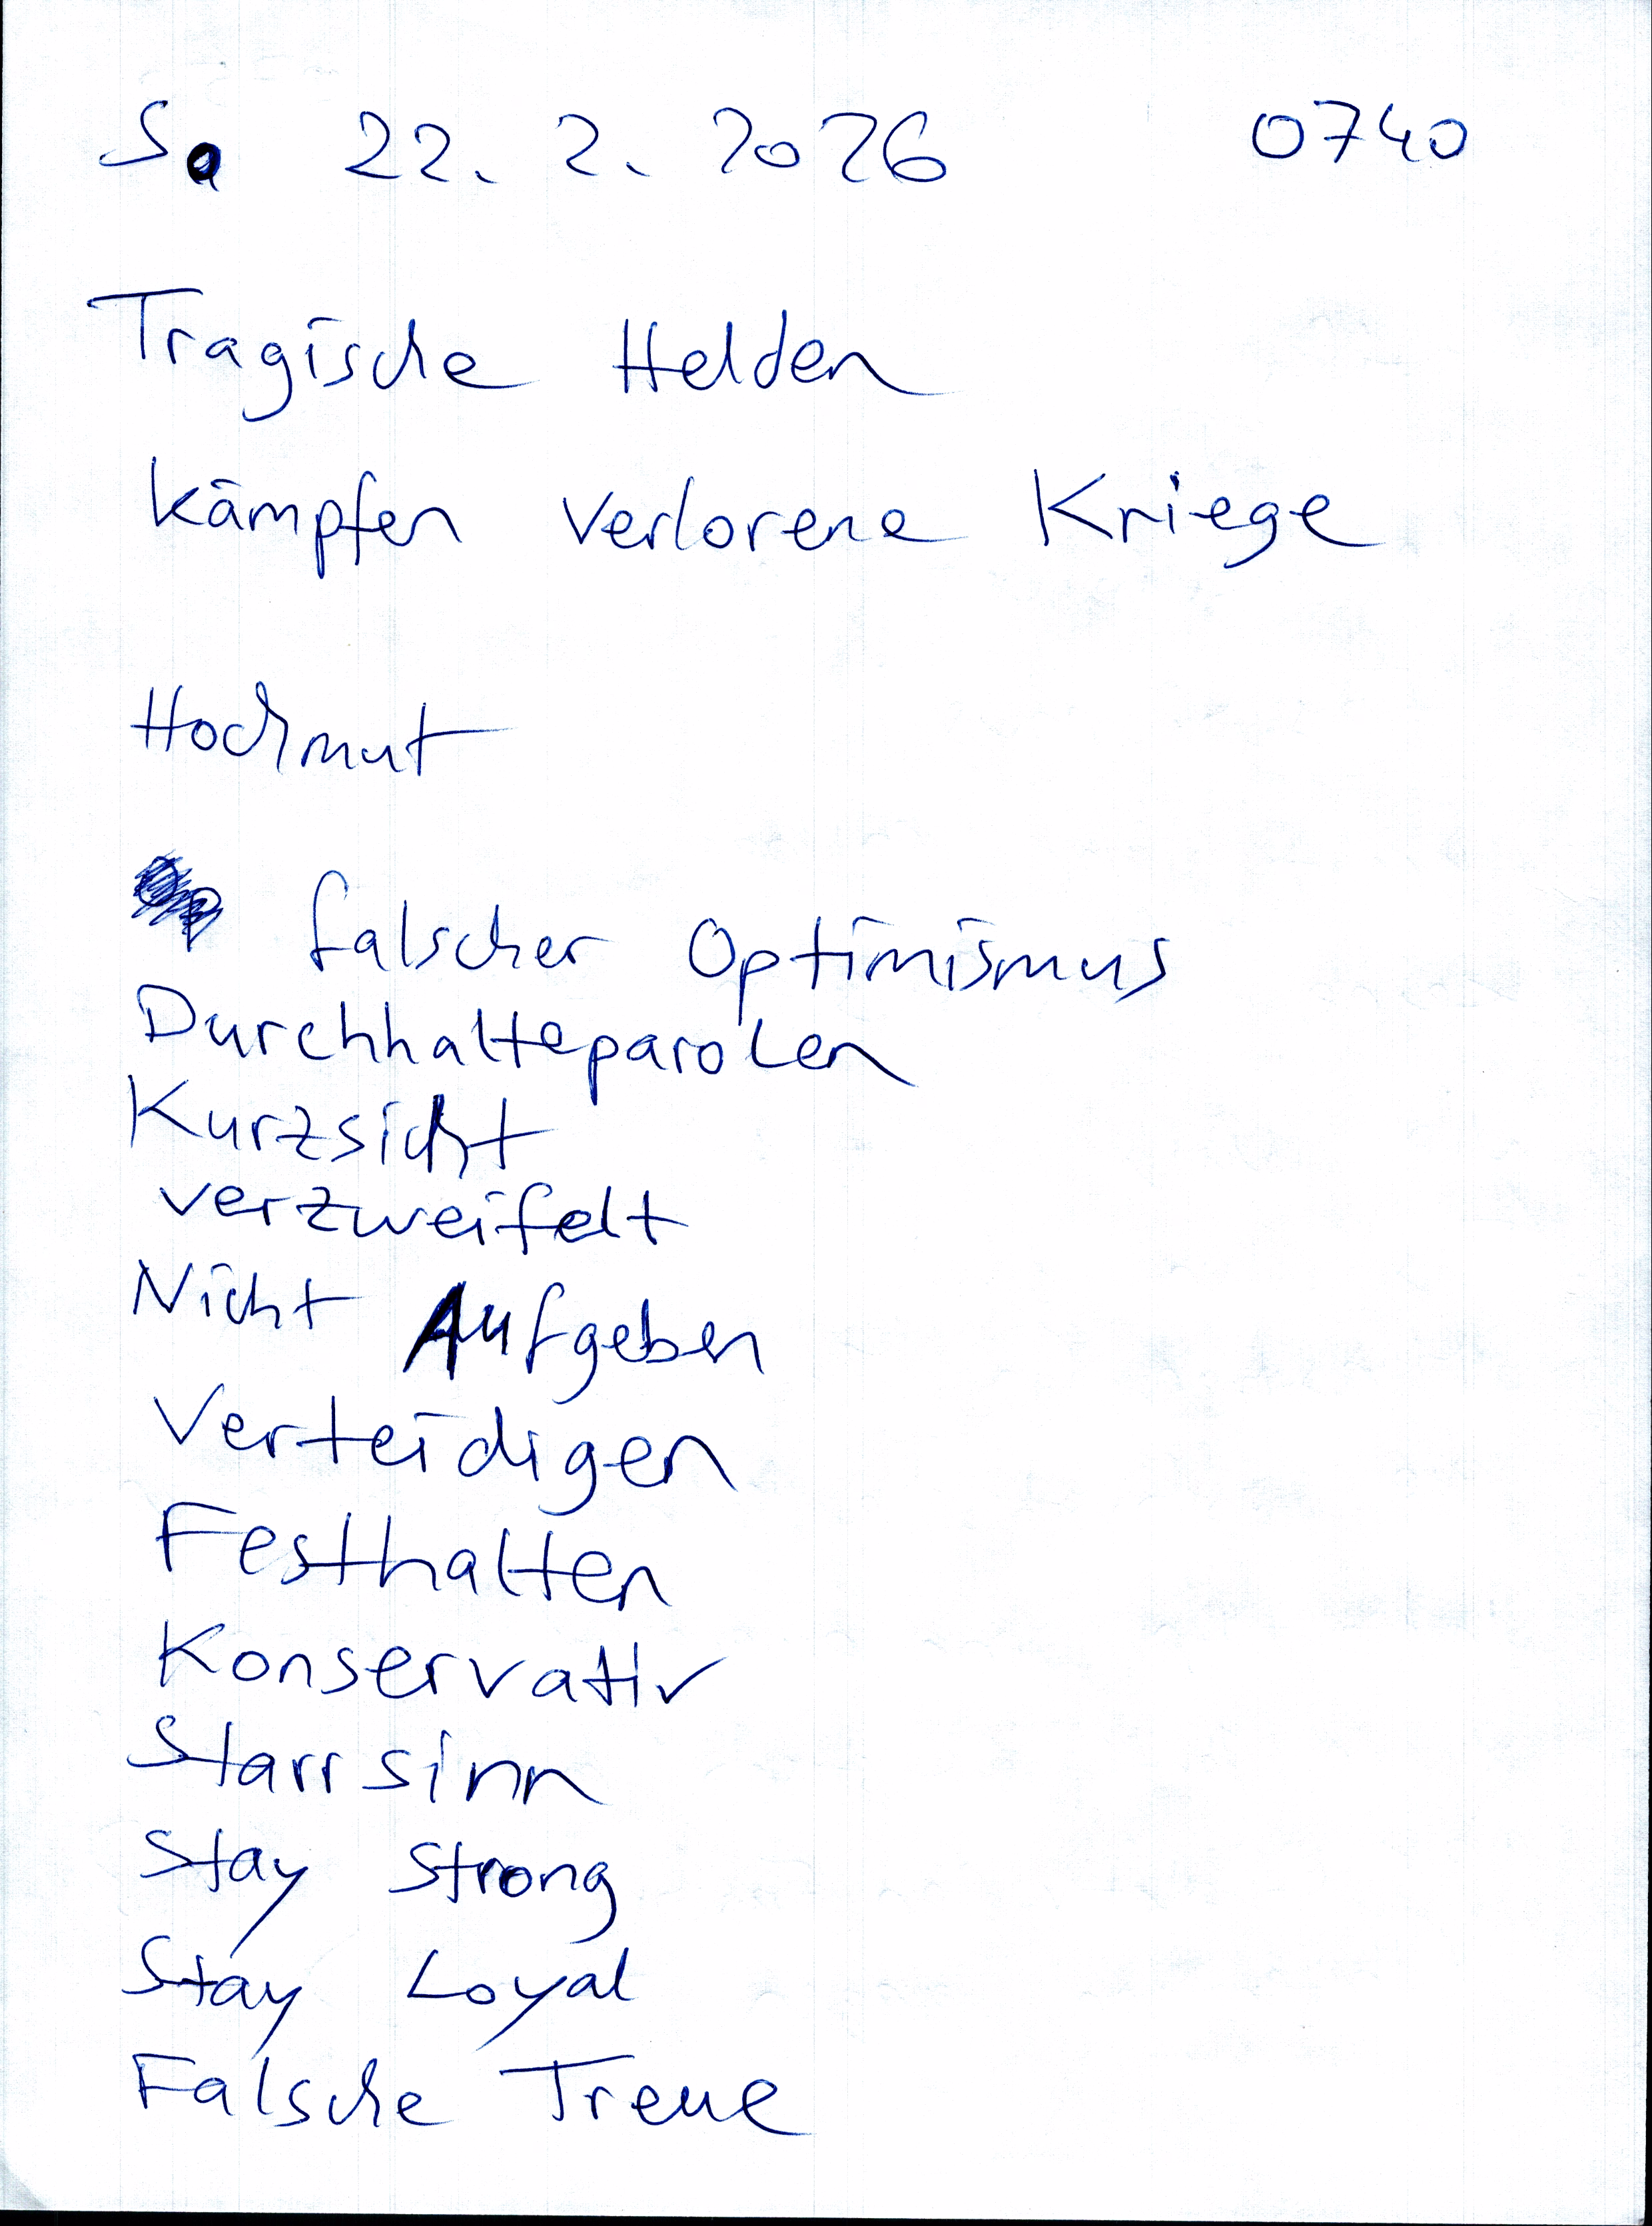 Sa 22. 2. 2026 0740
Tragische Helden
kämpfen verlorene Kriege
Hochmut
falscher Optimismus
Durchhalteparolen
Kurzsicht
verzweifelt
Nicht Aufgeben
Verteidigen
Festhalten
Konservativ
Starrsinn
Stay Strong
Stay Loyal
Falsche Treue